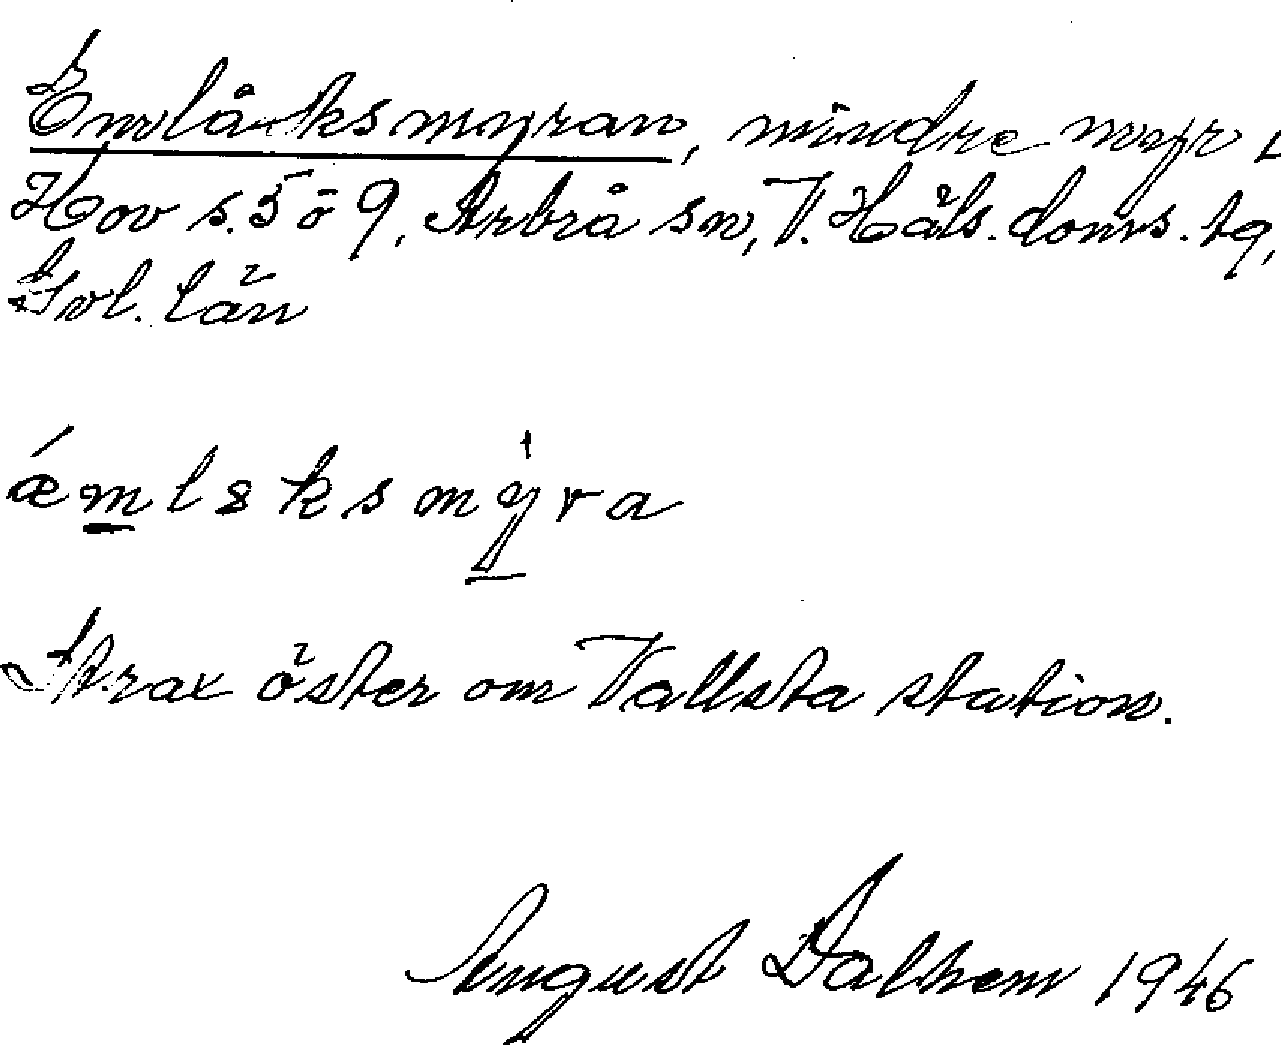 Emlåksmyran, mindre myr i
Hov s. 5 o 9, Arbrå sn, V. Häls. doms. tg,
Gvl. län
ǽmlɛksmy̍ra
Strax öster om Vallsta station.
August Dalhem 1946